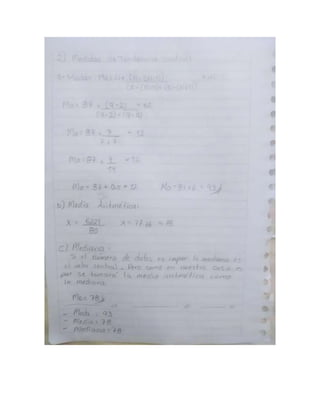 2) Medidas de Tendencia central
a- Moda: Mo = Li +
Mo = 87 + (9-2) × 12
(9-2) + (9-2)
Mo = 87 + 7 × 12
7 + 7
Mo = 87 + 7 × 12
14
Mo = 87 + 0.5 × 12 Mo = 87 + 6 = 93
b) Media Aritmética:
X = 80 X = 77 = 78
c) Mediana:
Si el número de datos es impar la mediana es
el valor central. Pero como en nuestro caso es
par se tomará la media aritmética como
la mediana.
Me = 78
- Moda = 93
- Media = 78
- Mediana = 78